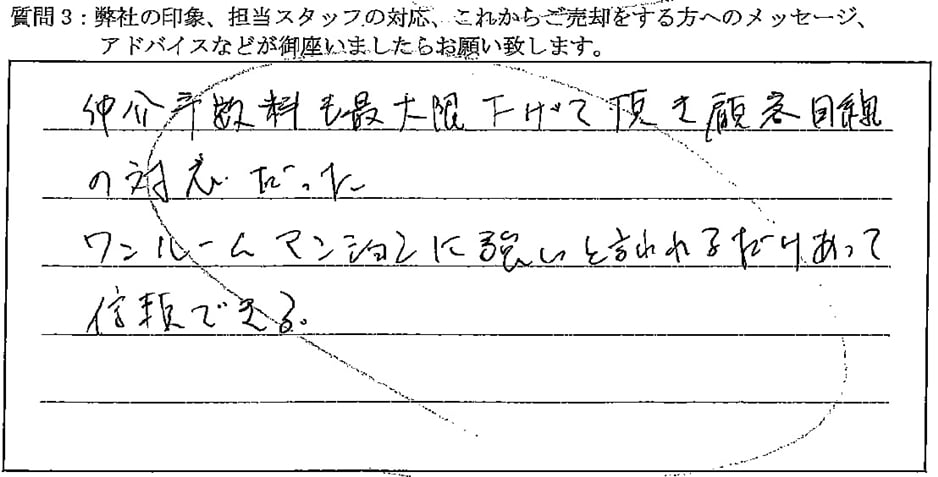 質問3：弊社の印象、担当スタッフの対応、これからご売却をする方へのメッセージ、
アドバイスなどが御座いましたらお願い致します。
仲介手数料も最大限下げて頂き顧客目線
の対応だった
ワンルームマンションに強いと言われるだけあって
信頼できる。